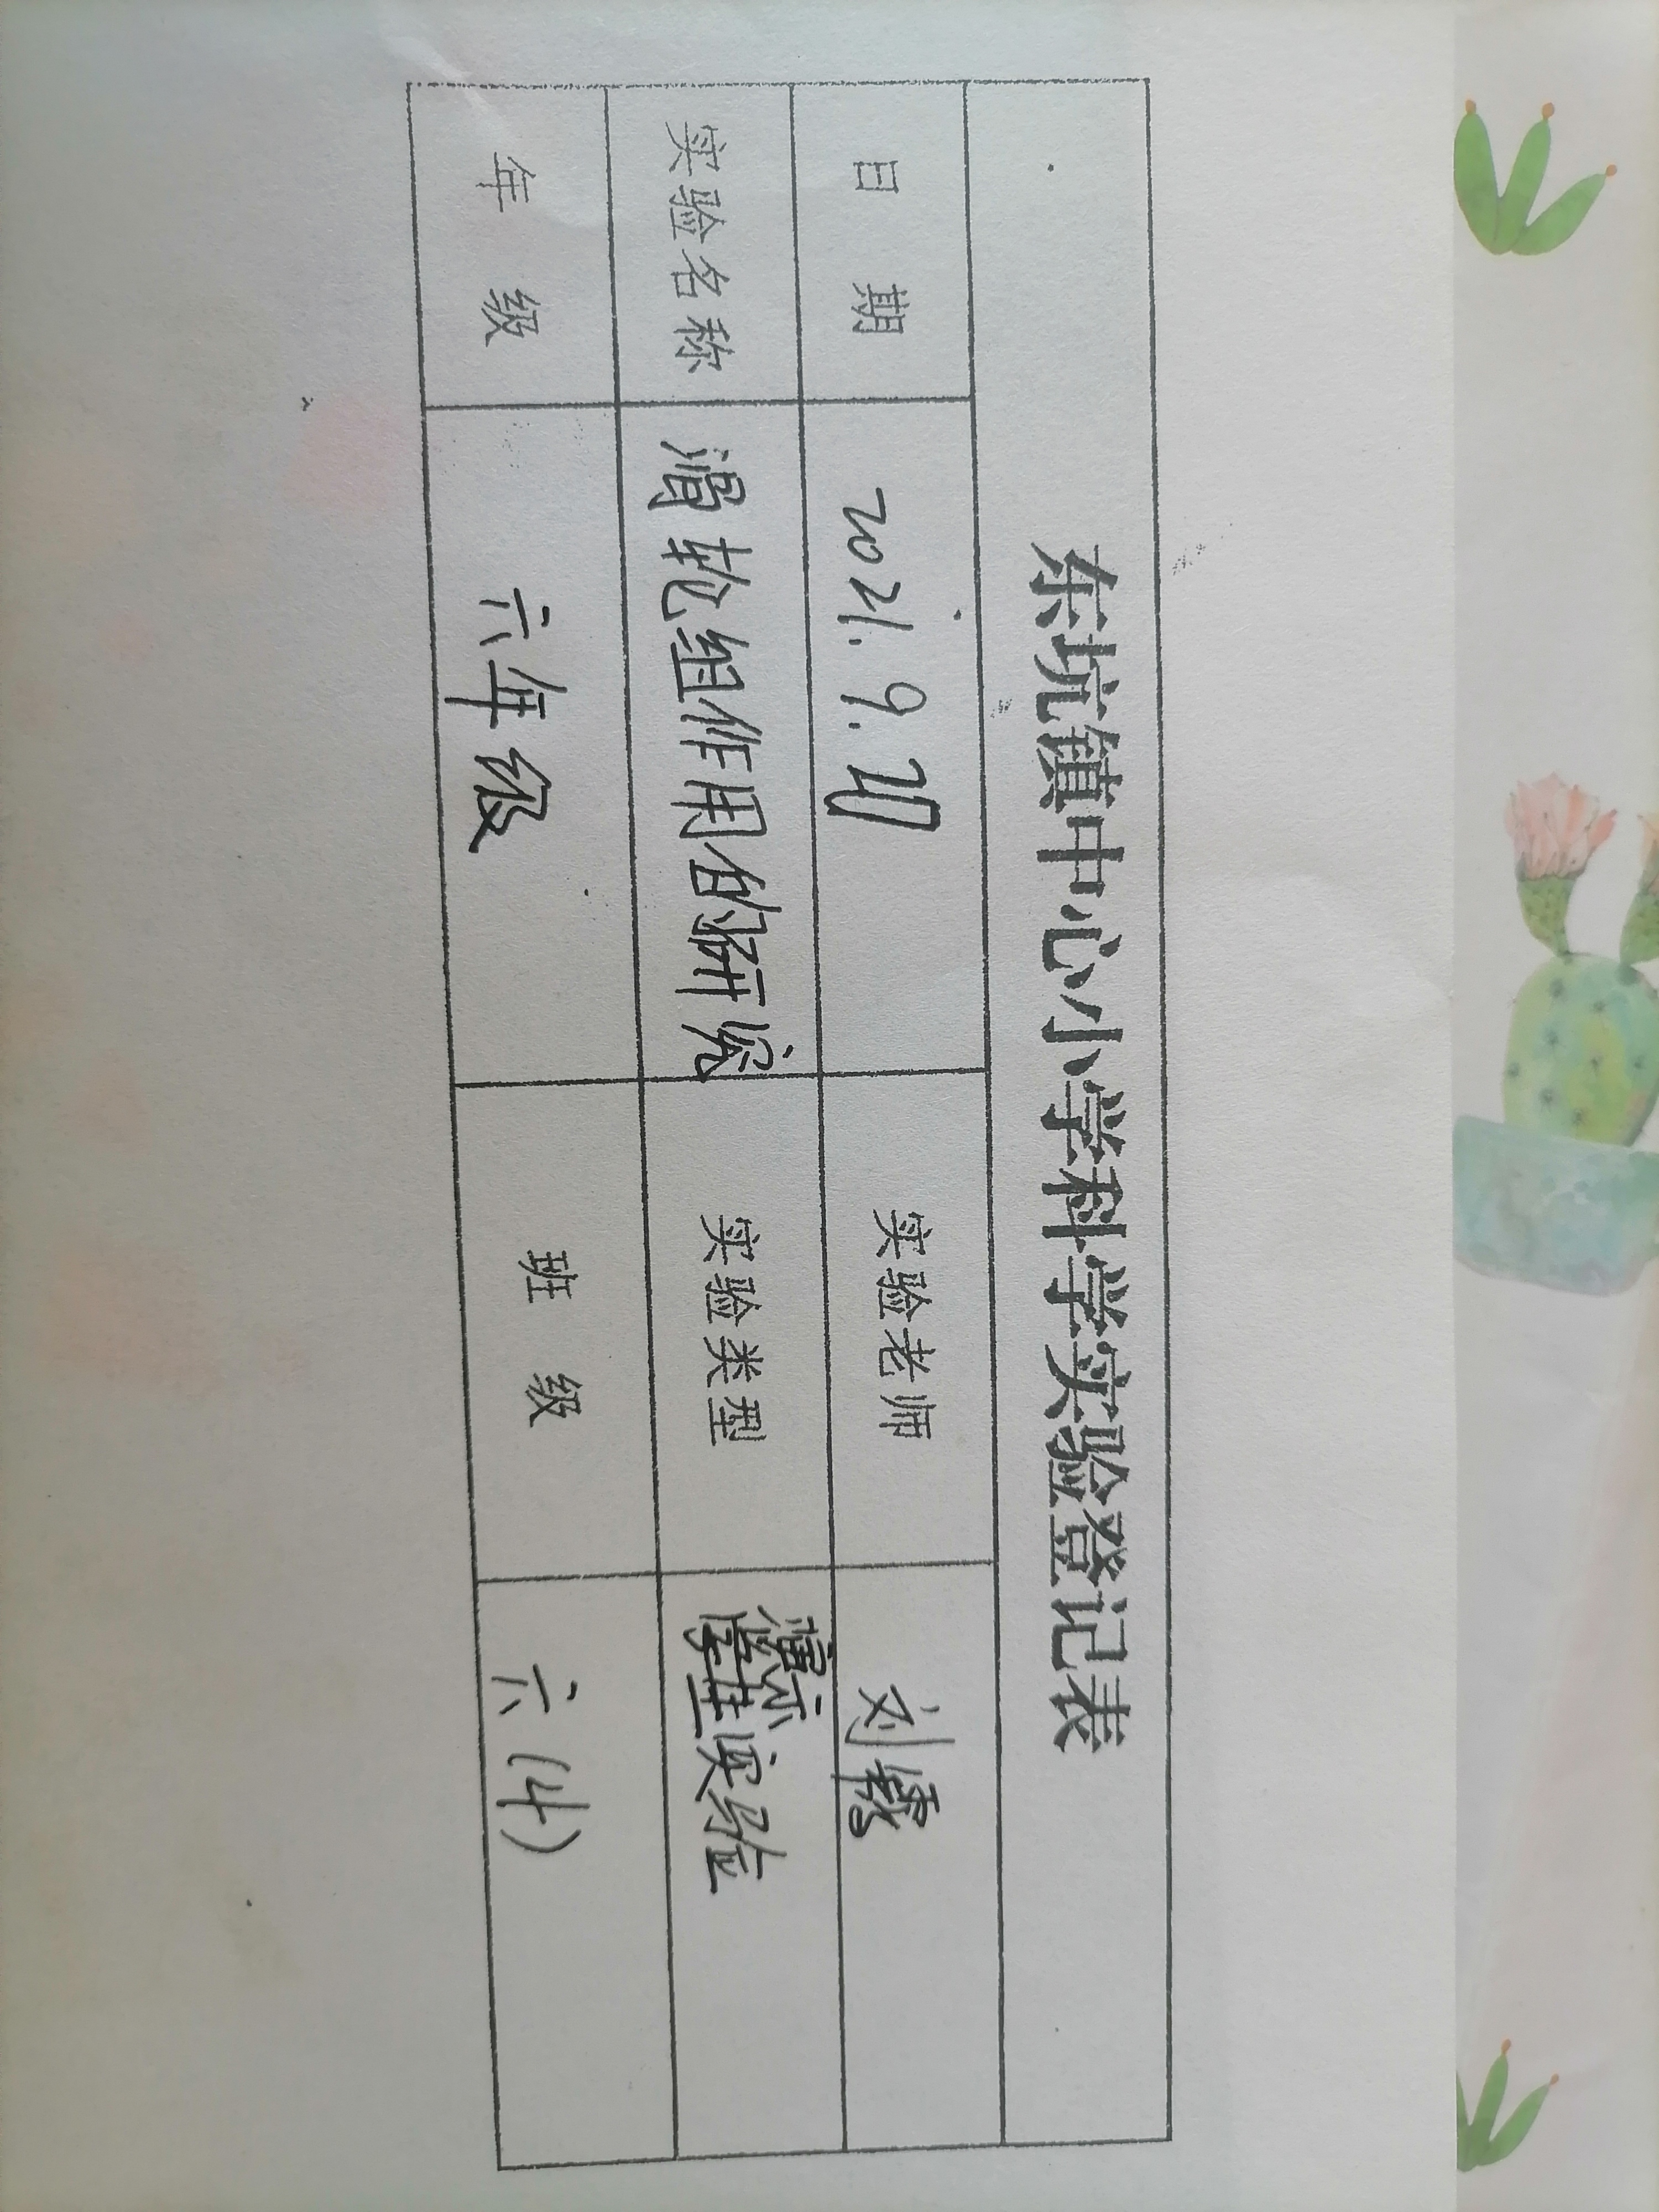 东坑镇中心小学科学实验登记表
日 期 2021.9. 实验老师 刘
实验名称 滑轮组作用的研究 实验类型 演示 实验
年 级 六年级 班 级 六(4)